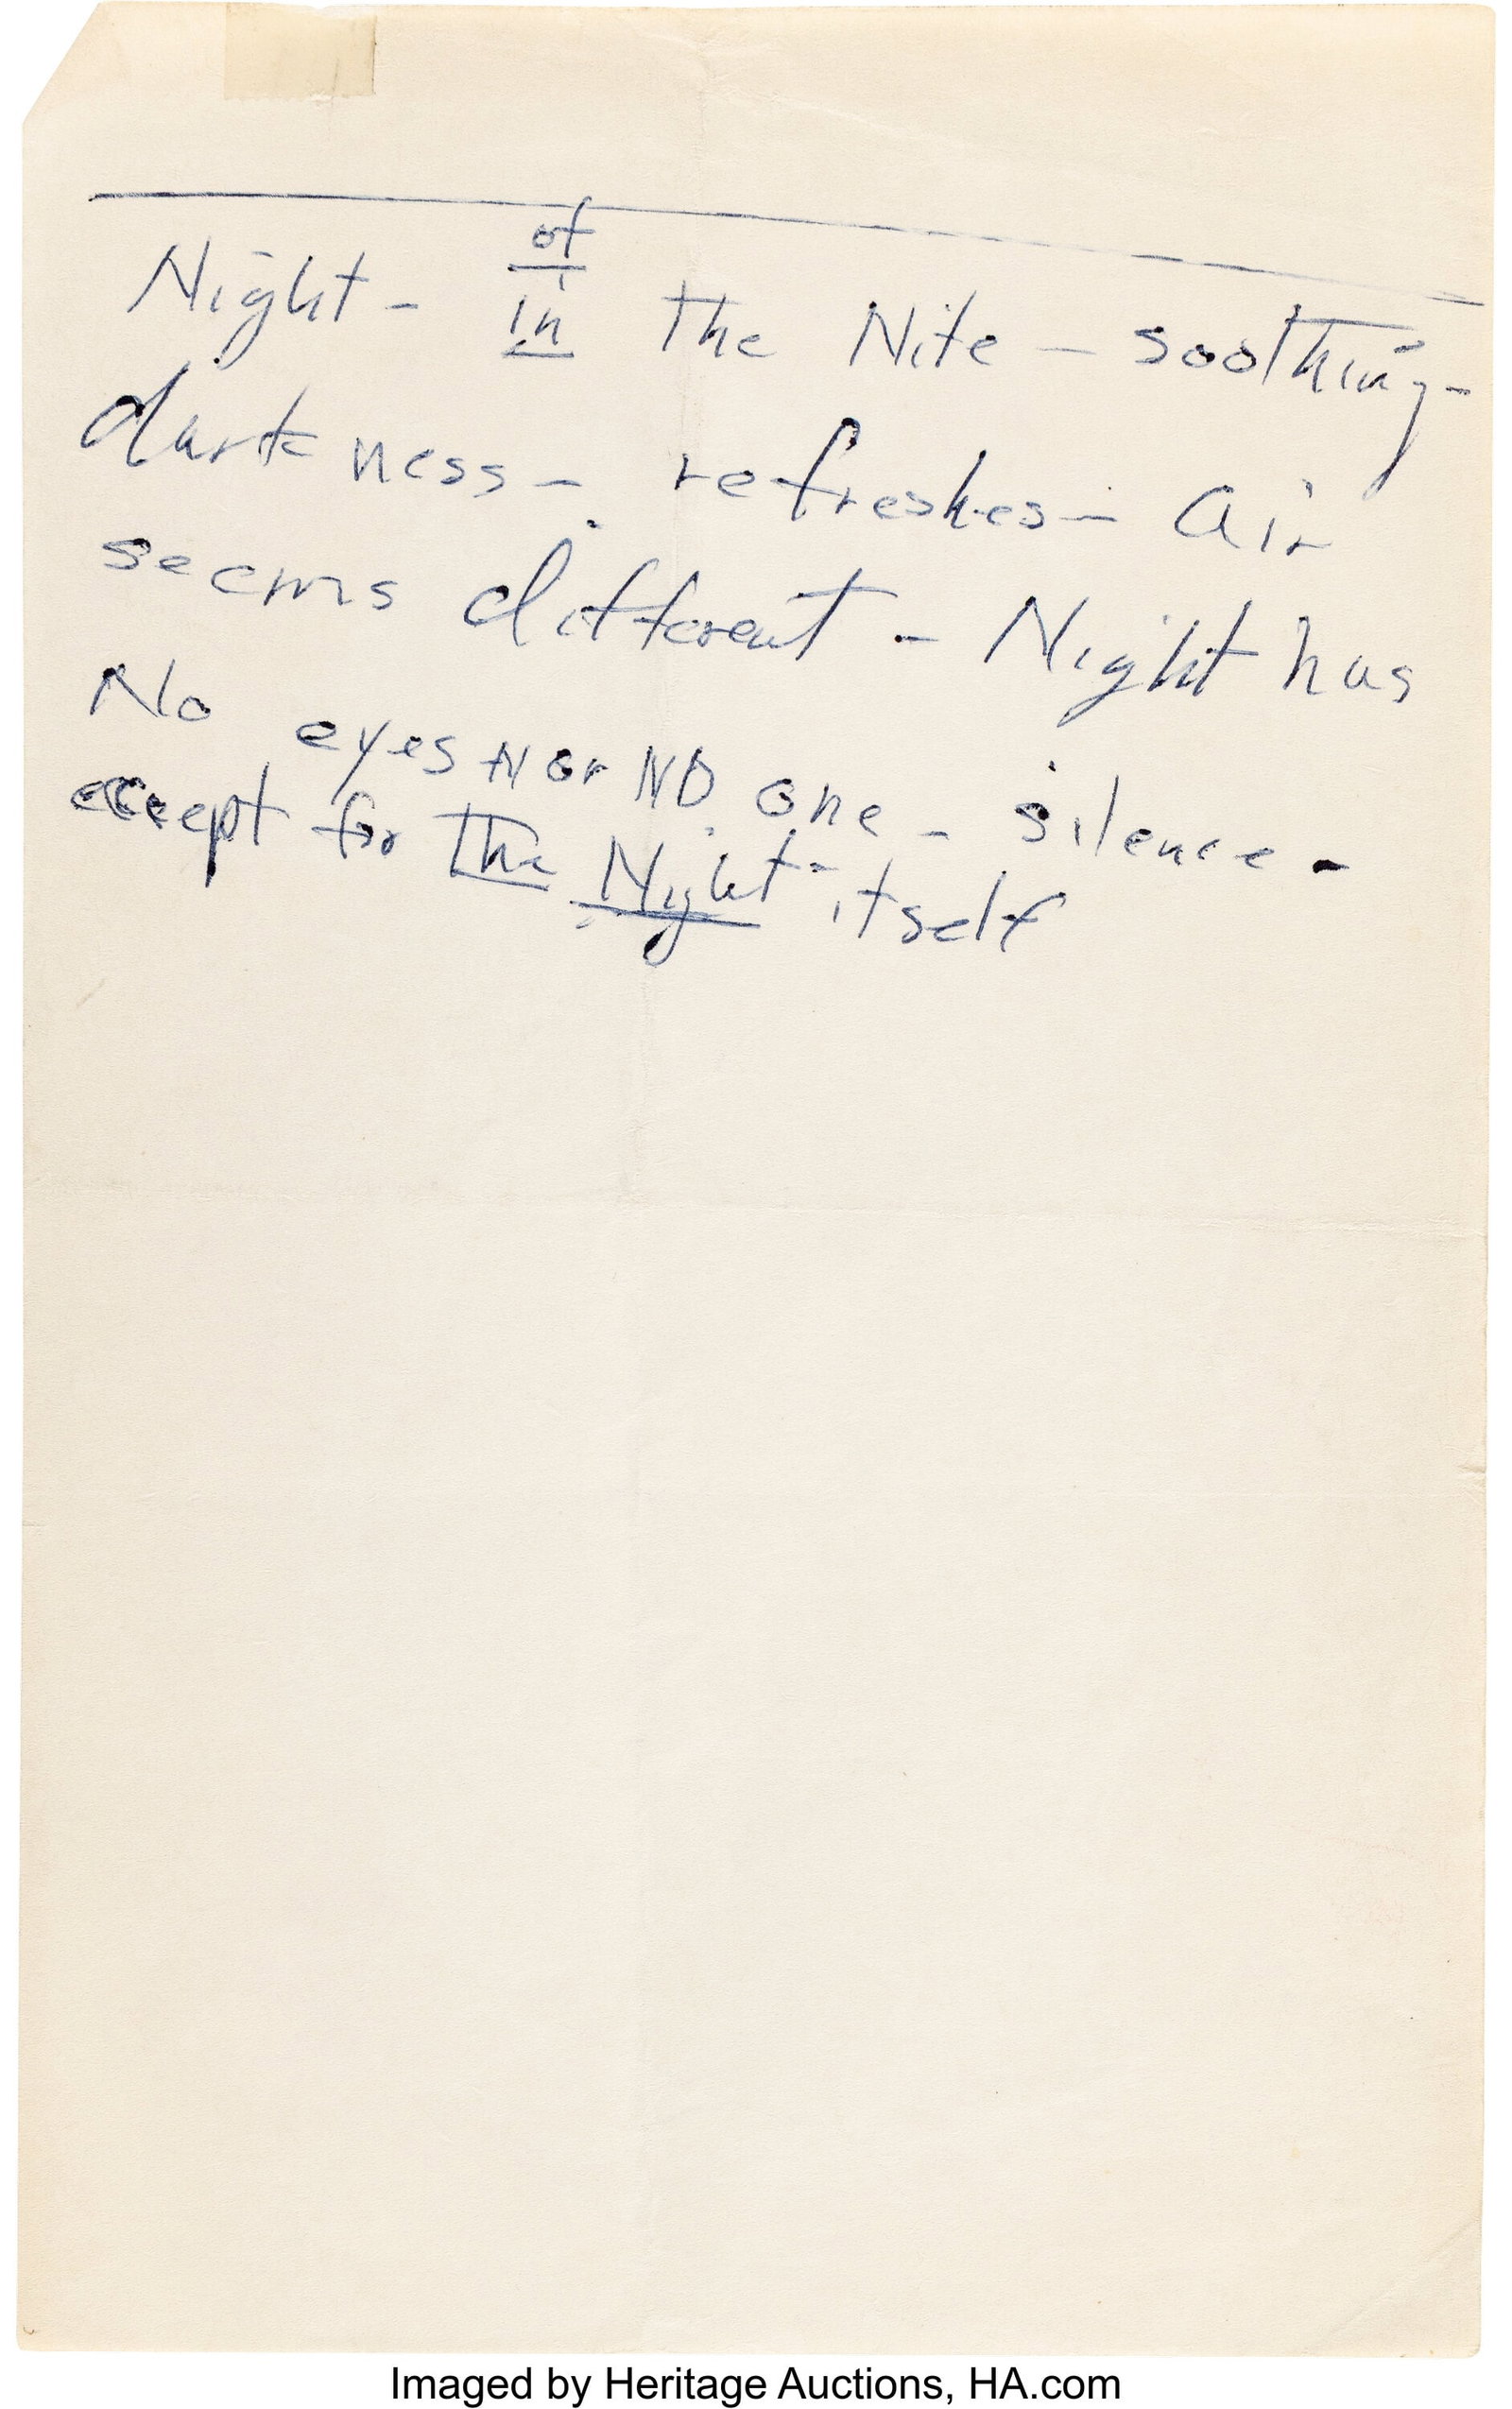 of
Night - in the Nite - soothing -
darkness - refreshes - air
seems different - Night has
No eyes nor NO one - silence -
except for the Night - itself
Imaged by Heritage Auctions, HA.com